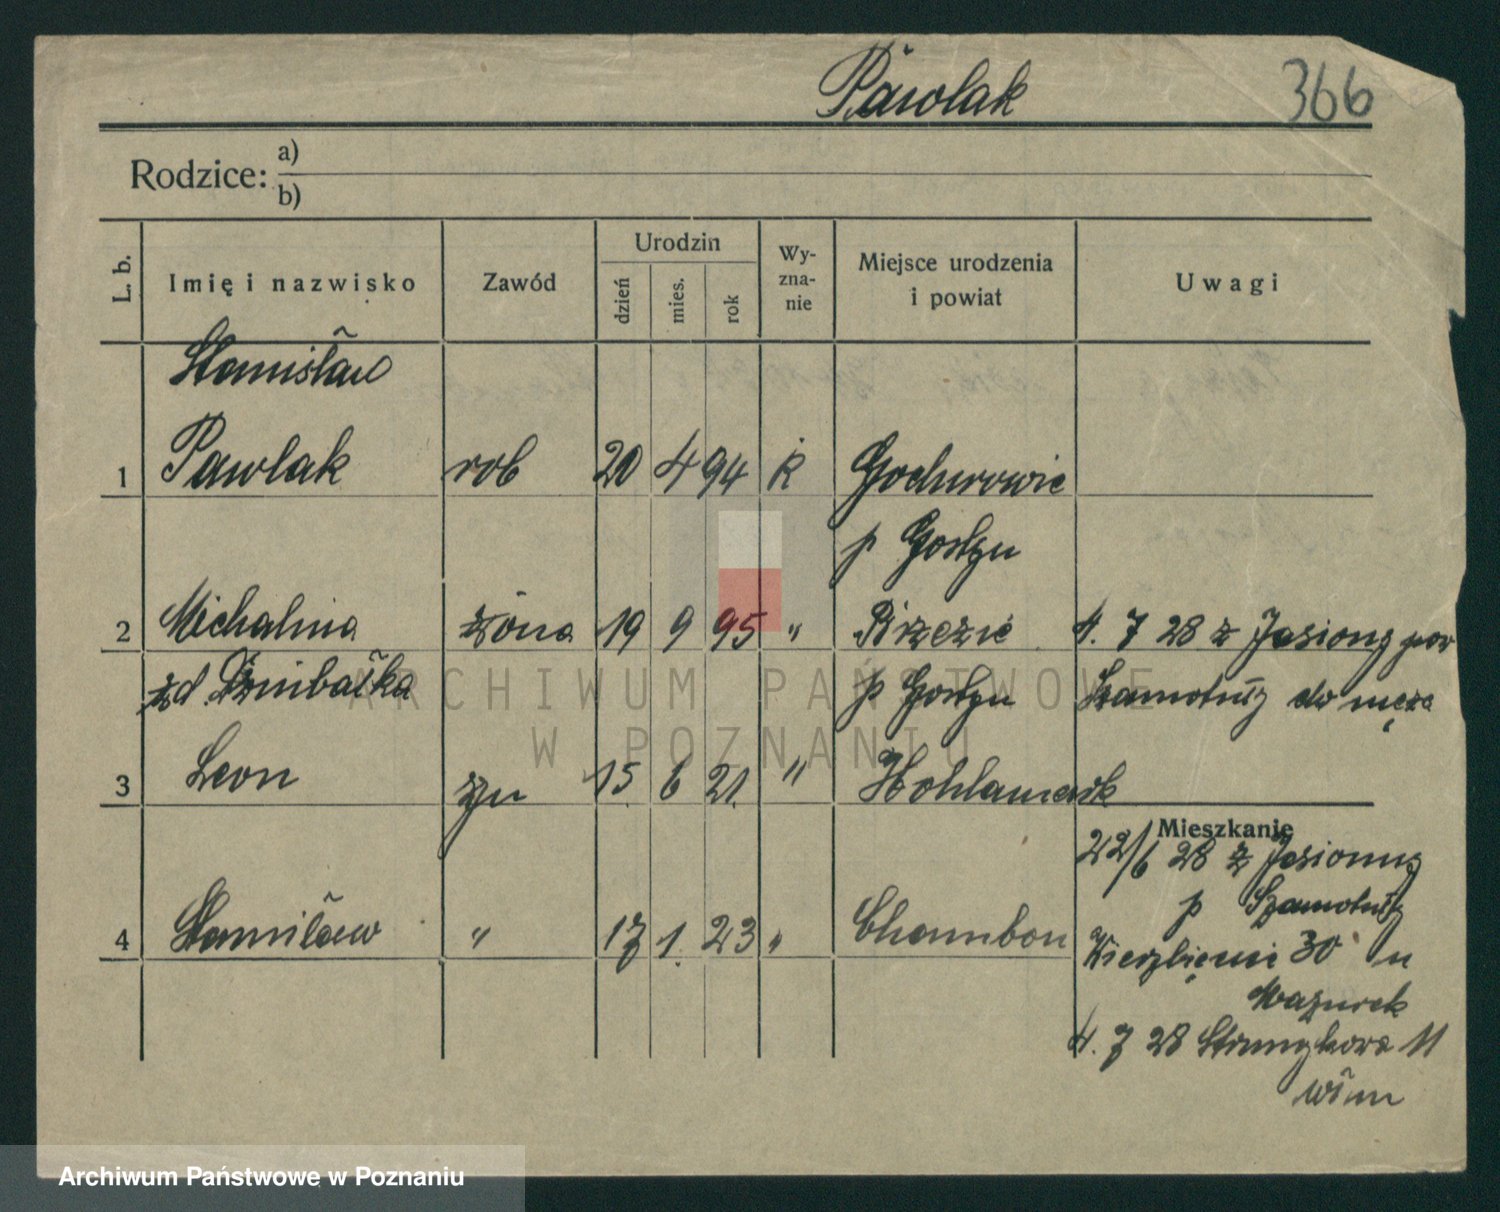 Pawlak 366
Rodzice: a)
b)
L. b. Imię i nazwisko Zawód Urodzin dzień mies. rok Wyznanie Miejsce urodzenia i powiat Uwagi
Stanisław
1 Pawlak rob 20 4 94 k
p Gostyn
2 Michalina żona 19 9 95 " 4. 7 28 z Jasiony pow
zd p Gostyn Szamotuły do męża
3 Leon syn 15. 6 21. "
Mieszkanie
22/6 28 z
p Szamotuły
4 Stanisław " 17 1. 23 " Chambon
Wierzbięcice 30 u
Mazurek
4. 7 28 11
ARCHIWUM PAŃSTWOWE
W POZNANIU
Archiwum Państwowe w Poznaniu